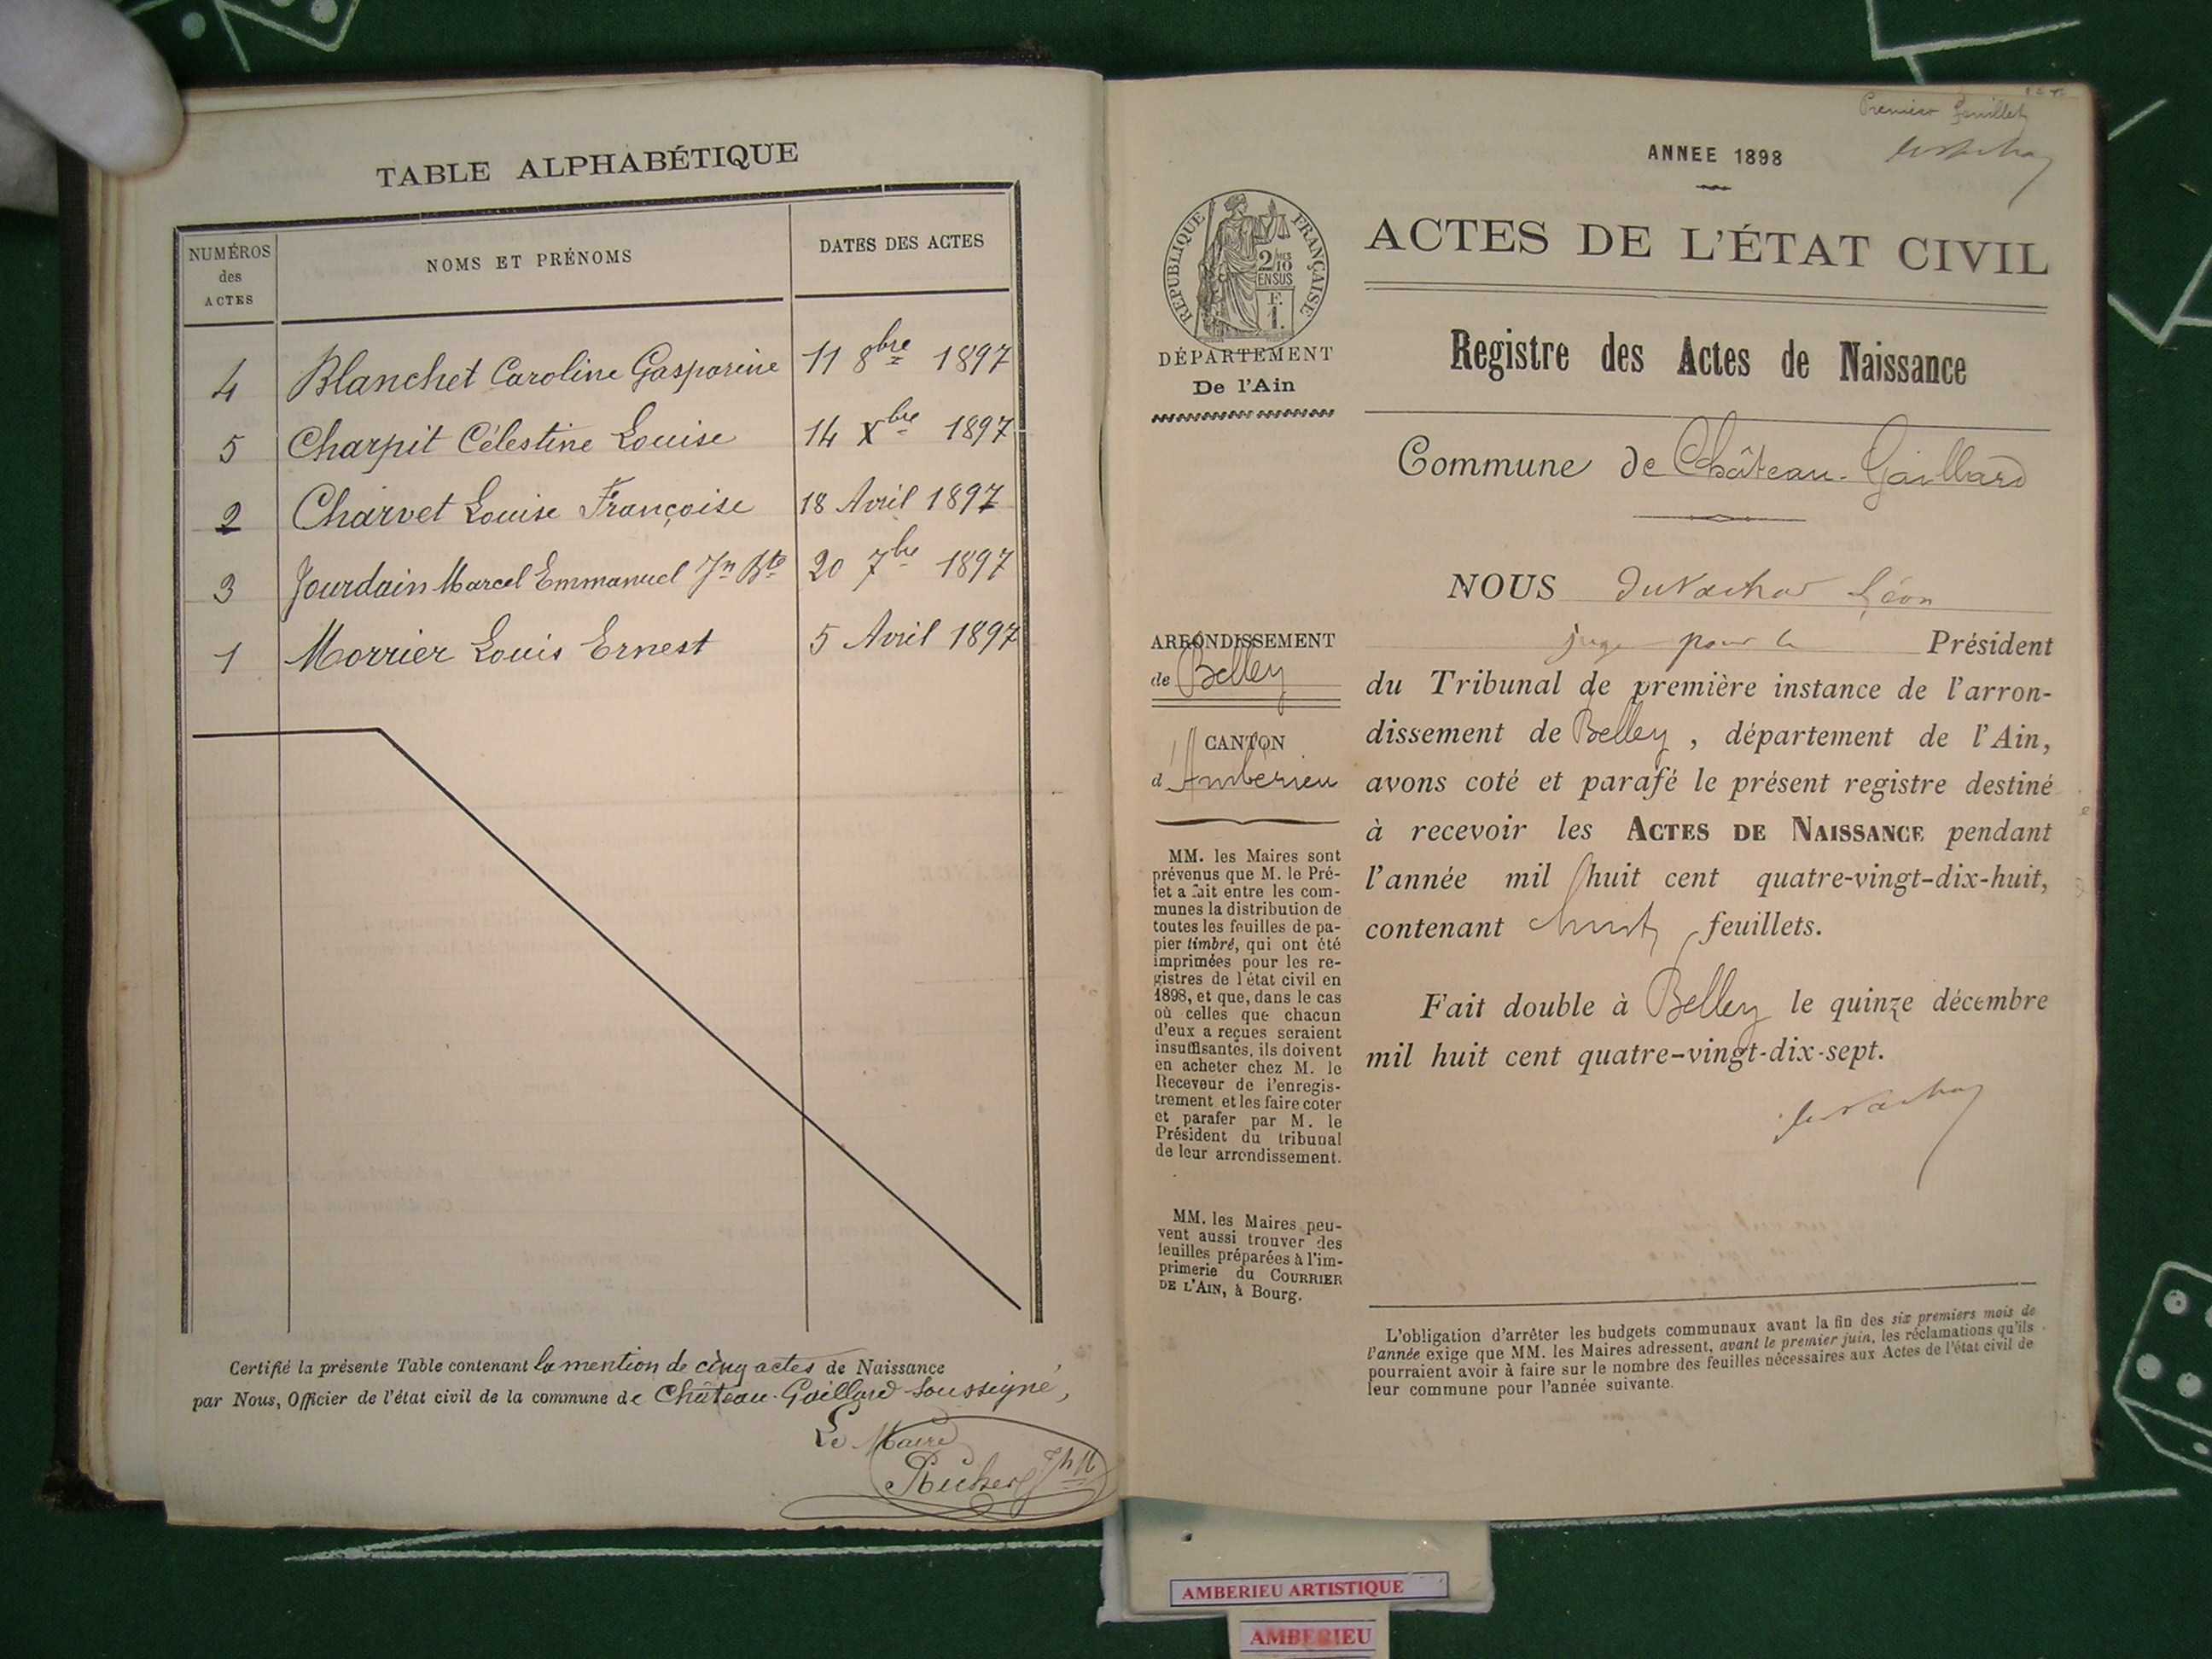 TABLE ALPHABÉTIQUE
NUMÉROS des ACTES
NOMS ET PRÉNOMS
DATES DES ACTES
4 Blanchet Caroline Gasparine 11 8bre 1897
5 Charpit Célestine Louise 14 Xbre 1897
2 Charvet Louise Françoise 18 Avril 1897
3 Jourdain Marcel Emmanuel Jn Bte 20 7bre 1897
1 Morrier Louis Ernest 5 Avril 1897
Certifié la présente Table contenant la mention de cinq actes de Naissance
par Nous, Officier de l'état civil de la commune de Château-Gaillard soussigné,
Le Maire
Premier feuillet
ANNEE 1898
RÉPUBLIQUE FRANÇAISE
2/10
EN SUS
F.
1.
ACTES DE L'ÉTAT CIVIL
DÉPARTEMENT
De l'Ain
Registre des Actes de Naissance
Commune de Château-Gaillard
ARRONDISSEMENT
de Belley
CANTON
d'Ambérieu
MM. les Maires sont
prévenus que M. le Pré-
fet a fait entre les com-
munes la distribution de
toutes les feuilles de pa-
pier timbré, qui ont été
imprimées pour les re-
gistres de l'état civil en
1898, et que, dans le cas
où celles que chacun
d'eux a reçues seraient
insuffisantes, ils doivent
en acheter chez M. le
Receveur de l'enregis-
trement et les faire coter
et parafer par M. le
Président du tribunal
de leur arrondissement.
MM. les Maires peu-
vent aussi trouver des
feuilles préparées à l'im-
primerie du COURRIER
DE L'AIN, à Bourg.
NOUS Léon
juge pour le Président
du Tribunal de première instance de l'arron-
dissement de Belley, département de l'Ain,
avons coté et parafé le présent registre destiné
à recevoir les ACTES DE NAISSANCE pendant
l'année mil huit cent quatre-vingt-dix-huit,
contenant huit feuillets.
Fait double à Belley le quinze décembre
mil huit cent quatre-vingt-dix-sept.
L'obligation d'arrêter les budgets communaux avant la fin des six premiers mois de
l'année exige que MM. les Maires adressent, avant le premier juin, les réclamations qu'ils
pourraient avoir à faire sur le nombre des feuilles nécessaires aux Actes de l'état civil de
leur commune pour l'année suivante.
AMBERIEU ARTISTIQUE
AMBERIEU